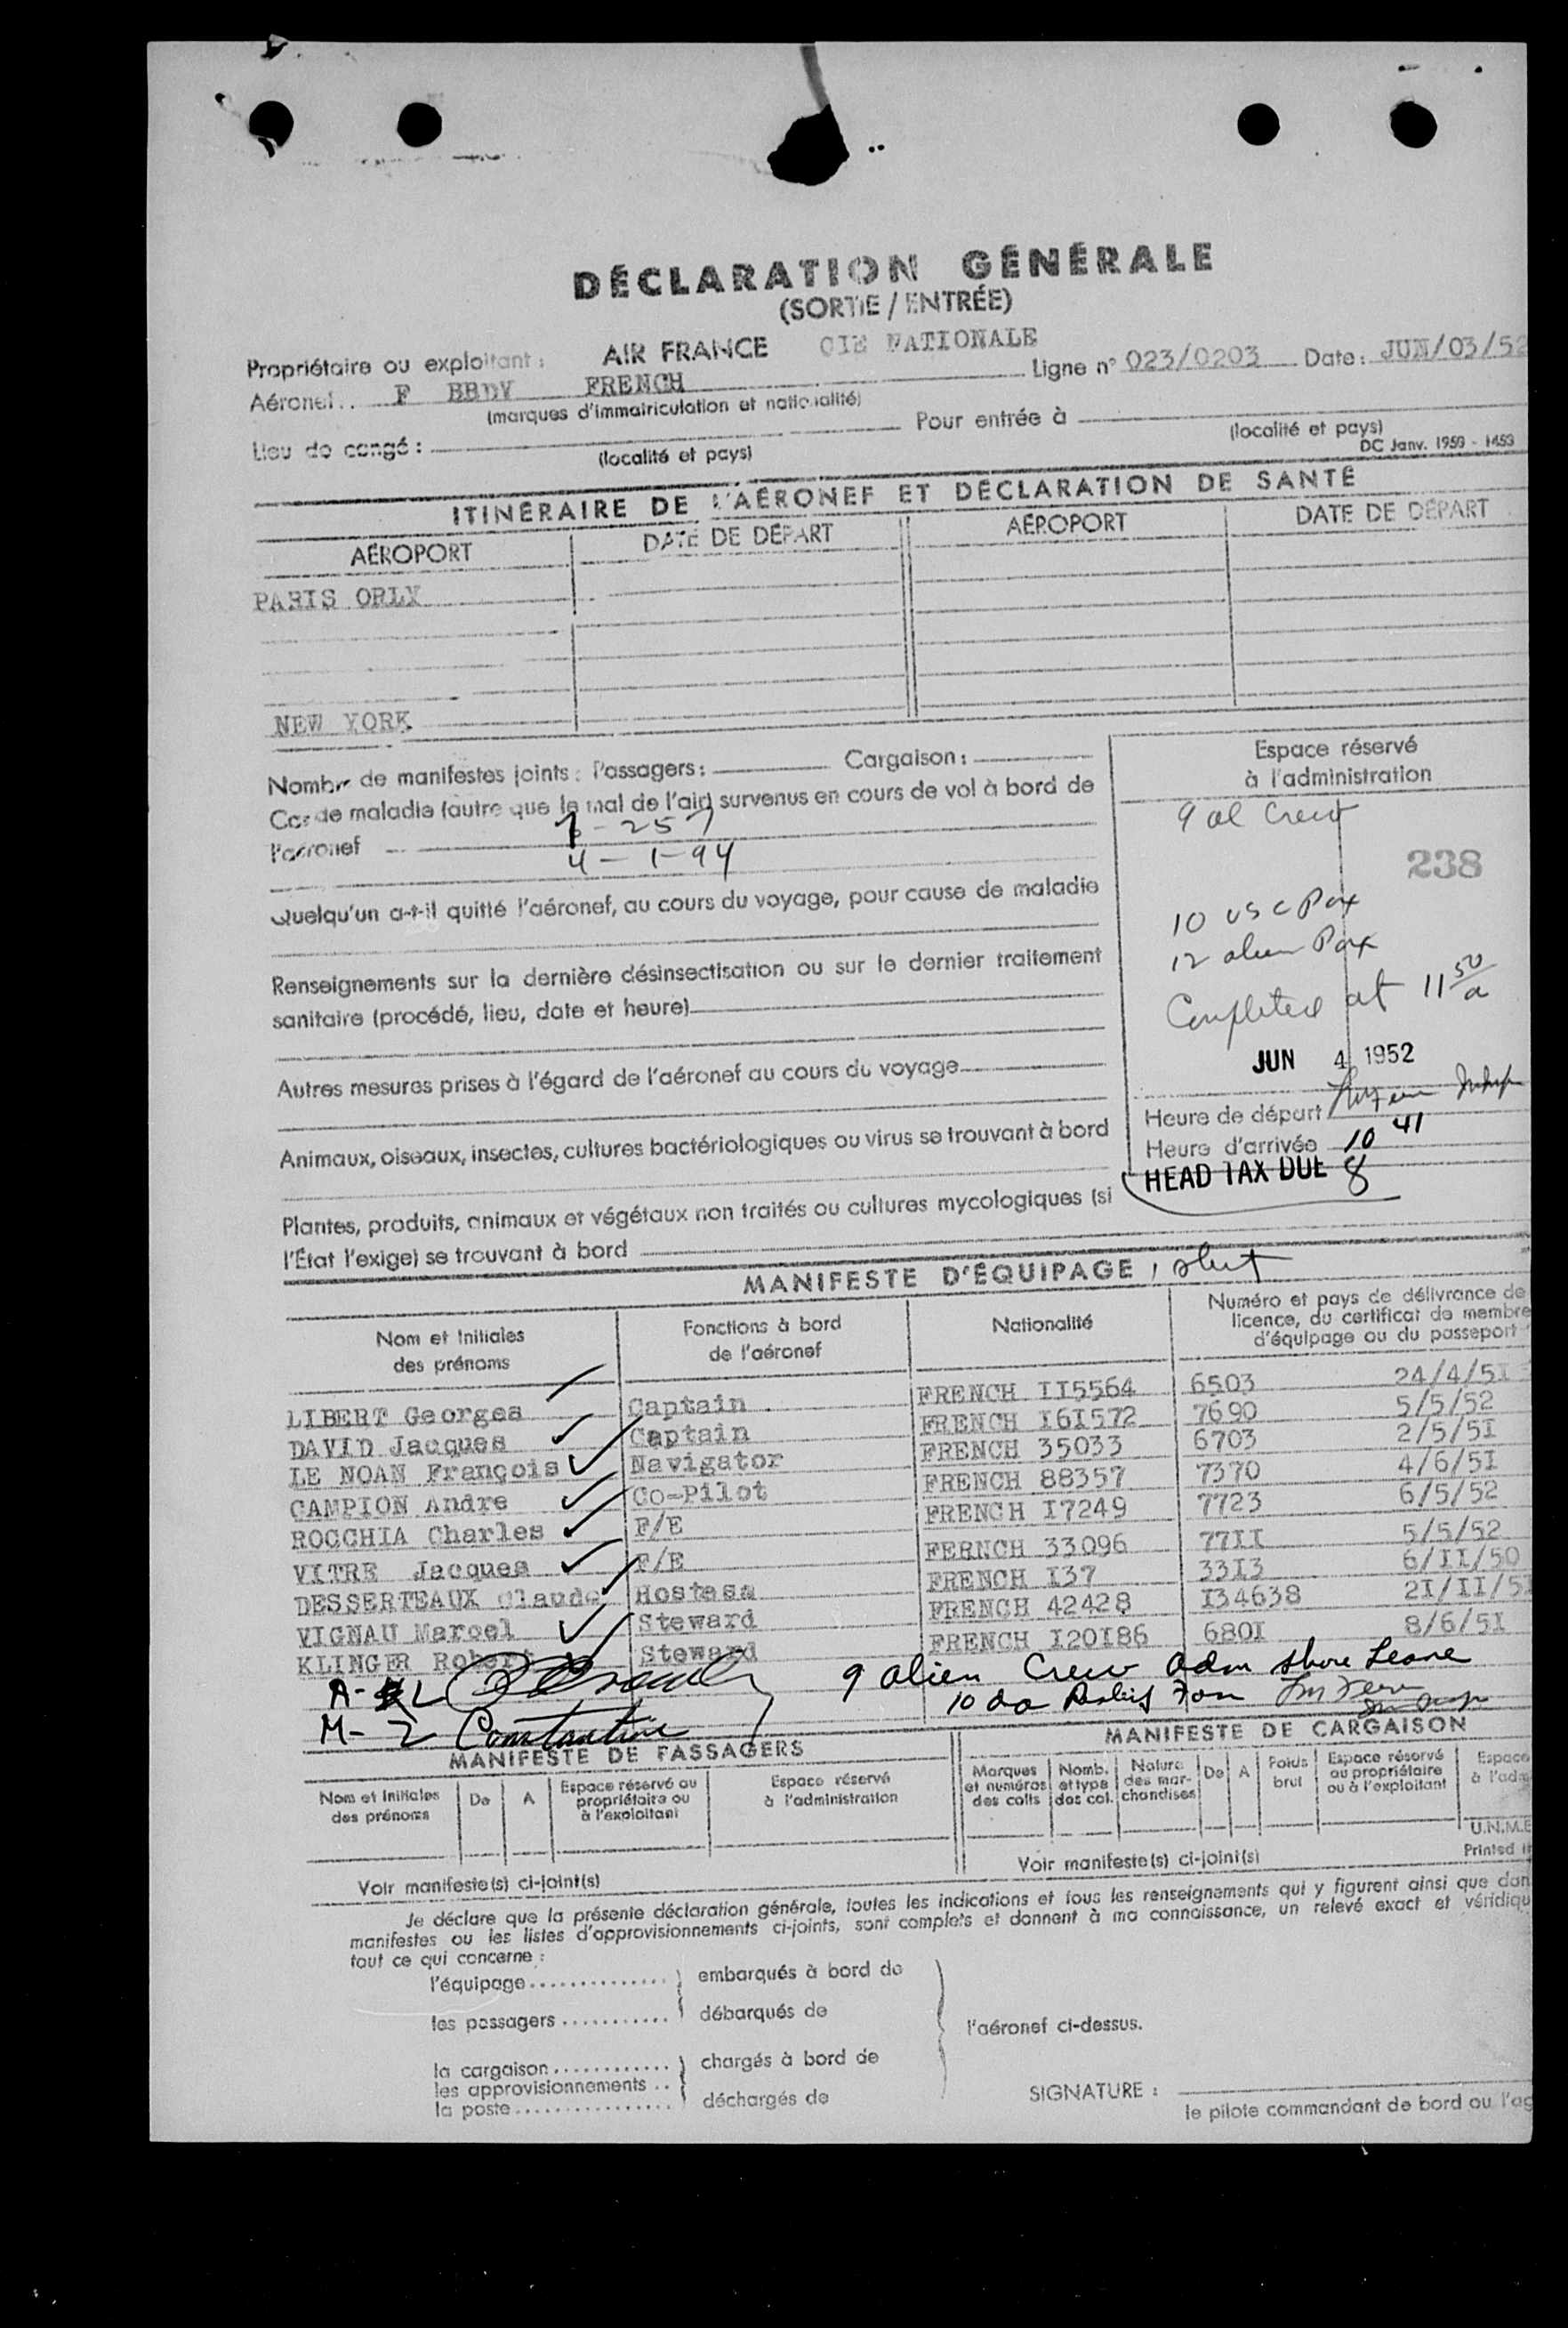 DÉCLARATION GÉNÉRALE
(SORTIE / ENTRÉE)
Propriétaire ou exploitant : AIR FRANCE CIE NATIONALE Ligne n° 023/0203 Date : JUN/03/52
Aéronef . . F BBDV FRENCH
(marques d'immatriculation et nationalité)
Lieu de congé : Pour entrée à
(localité et pays) (localité et pays)
DC Janv. 1950 - 1453
ITINÉRAIRE DE L'AÉRONEF ET DÉCLARATION DE SANTÉ
AÉROPORT DATE DE DÉPART AÉROPORT DATE DE DÉPART
PARIS ORLY
NEW YORK
Nombre de manifestes joints : Passagers : Cargaison :
Cas de maladie (autre que le mal de l'air) survenus en cours de vol à bord de
l'aéronef
4 - 1-94
Quelqu'un a-t-il quitté l'aéronef, au cours du voyage, pour cause de maladie
Renseignements sur la dernière désinsectisation ou sur le dernier traitement
sanitaire (procédé, lieu, date et heure)
Autres mesures prises à l'égard de l'aéronef au cours du voyage
Animaux, oiseaux, insectes, cultures bactériologiques ou virus se trouvant à bord
Plantes, produits, animaux et végétaux non traités ou cultures mycologiques (si
l'État l'exige) se trouvant à bord
Espace réservé
à l'administration
9 al Crew
238
10 USC Pax
12 alien Pax
Completed at 11 50/a
JUN 4 1952
Heure de départ
Heure d'arrivée 10 41
HEAD TAX DUE 8
MANIFESTE D'ÉQUIPAGE
Nom et Initiales des prénoms Fonctions à bord de l'aéronef Nationalité Numéro et pays de délivrance de licence, du certificat de membre d'équipage ou du passeport
LIBERT Georges Captain FRENCH II5564 6503 24/4/5I
DAVID Jacques Captain FRENCH I6I572 7690 5/5/52
LE NOAN François Navigator FRENCH 35033 6703 2/5/5I
CAMPION Andre Co-Pilot FRENCH 88357 7370 4/6/5I
ROCCHIA Charles F/E FRENCH I7249 7723 6/5/52
VITRE Jacques F/E FERNCH 33096 77II 5/5/52
DESSERTEAUX Claude Hostess FRENCH I37 33I3 6/II/50
VIGNAU Marcel Steward FRENCH 42428 I34638 2I/II/5I
KLINGER Robert Steward FRENCH I20I86 680I 8/6/5I
9 alien Crew adm shore Leave
M- 2 Constantine
MANIFESTE DE PASSAGERS
Nom et Initiales des prénoms De A Espace réservé au propriétaire ou à l'exploitant Espace réservé à l'administration
Voir manifeste(s) ci-joint(s)
MANIFESTE DE CARGAISON
Marques et numéros des colis Nomb. et type des col. Nature des marchandises De A Poids brut Espace réservé au propriétaire ou à l'exploitant Espace
Voir manifeste(s) ci-joint(s)
Printed
Je déclare que la présente déclaration générale, toutes les indications et tous les renseignements qui y figurent ainsi que dan
manifestes ou les listes d'approvisionnements ci-joints, sont complets et donnent à ma connaissance, un relevé exact et véridiqu
tout ce qui concerne :
l'équipage . . . . . . . . . . . . . . embarqués à bord de
les passagers . . . . . . . . . . . . débarqués de
l'aéronef ci-dessus.
la cargaison . . . . . . . . . . . . chargés à bord de
les approvisionnements . .
la poste . . . . . . . . . . . . . . . . déchargés de
SIGNATURE :
le pilote commandant de bord ou l'ag